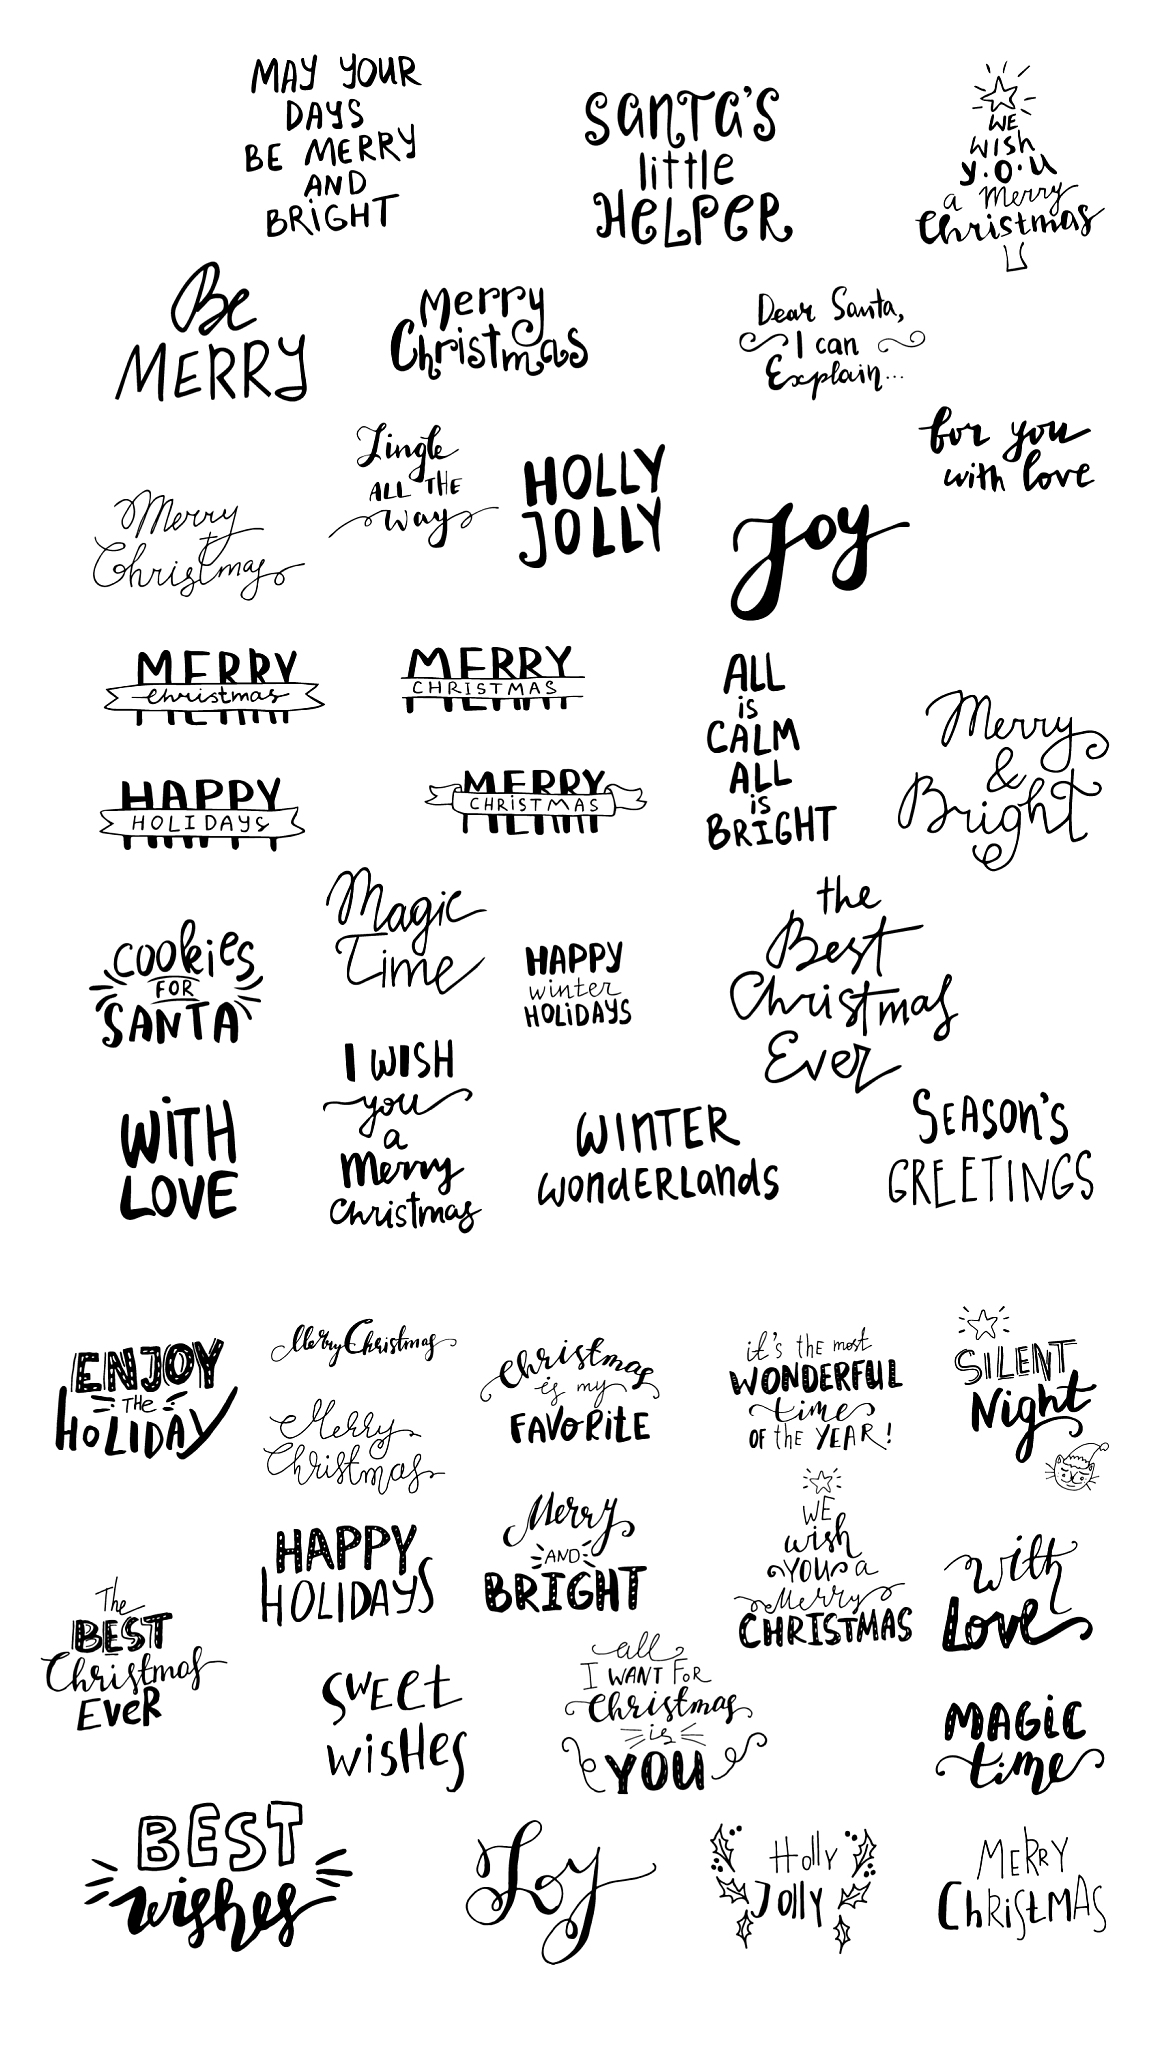 MAY YOUR
DAYS
BE MERRY
AND
BRIGHT
SANTA'S
little
HELPER
WE
wish
y.o.u
a merry
Christmas
Be
MERRY
Merry
Christmas
Dear Santa,
I can
Explain...
Jingle
ALL THE
Way
HOLLY
JOLLY
for you
with love
Merry
Christmas
Joy
MERRY
Christmas
MERRY
CHRISTMAS
ALL
is
CALM
ALL
is
BRIGHT
Merry
&
Bright
HAPPY
HOLIDAYS
MERRY
CHRISTMAS
Cookies
FOR
SANTA
Magic
Time
HAPPY
winter
HOLIDAYS
the
Best
Christmas
Ever
WITH
LOVE
I WISH
you
a
Merry
Christmas
WINTER
WONDERLANDS
SEASON'S
GREETINGS
ENJOY
THE
HOLIDAY
Merry Christmas
Merry
Christmas
Christmas
is my
FAVORITE
it's the most
WONDERFUL
time
OF the YEAR!
SILENT
Night
HAPPY
HOLIDAYS
Merry
AND
BRIGHT
WE
wish
YOU a
Merry
CHRISTMAS
with
Love
The
BEST
Christmas
EVER
SWEET
WISHES
all
I WANT FOR
Christmas
is
YOU
MAGIC
time
BEST
wishes
Joy
Holly
Jolly
MERRY
CHRISTMAS